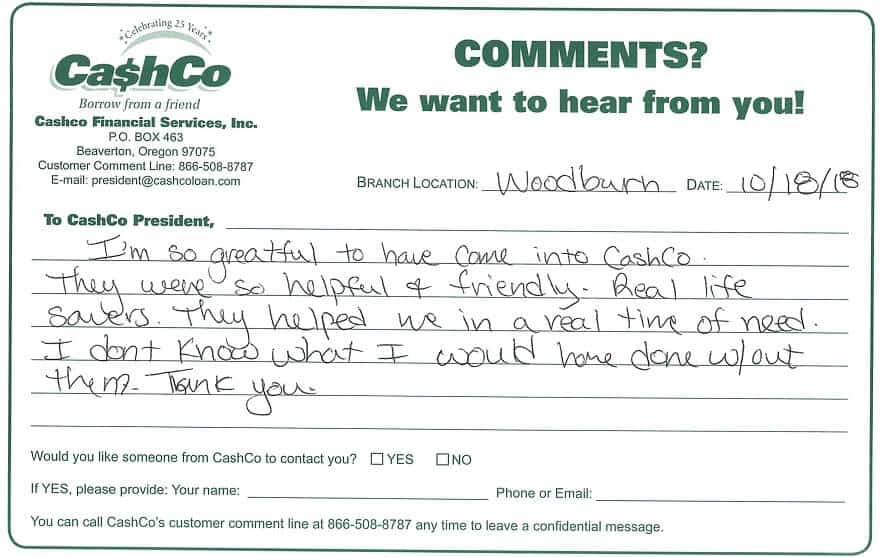 Celebrating 25 Years
Ca$hCo
Borrow from a friend
Cashco Financial Services, Inc.
P.O. BOX 463
Beaverton, Oregon 97075
Customer Comment Line: 866-508-8787
E-mail: president@cashcoloan.com
COMMENTS?
We want to hear from you!
BRANCH LOCATION: Woodburn DATE: 10/18/18
To CashCo President,
I'm so greatful to have come into CashCo.
They were so helpful & friendly. Real life
savers. They helped me in a real time of need.
I dont know what I would have done w/out
them. Thank you.
Would you like someone from CashCo to contact you? ☐ YES ☐ NO
If YES, please provide: Your name: Phone or Email:
You can call CashCo's customer comment line at 866-508-8787 any time to leave a confidential message.